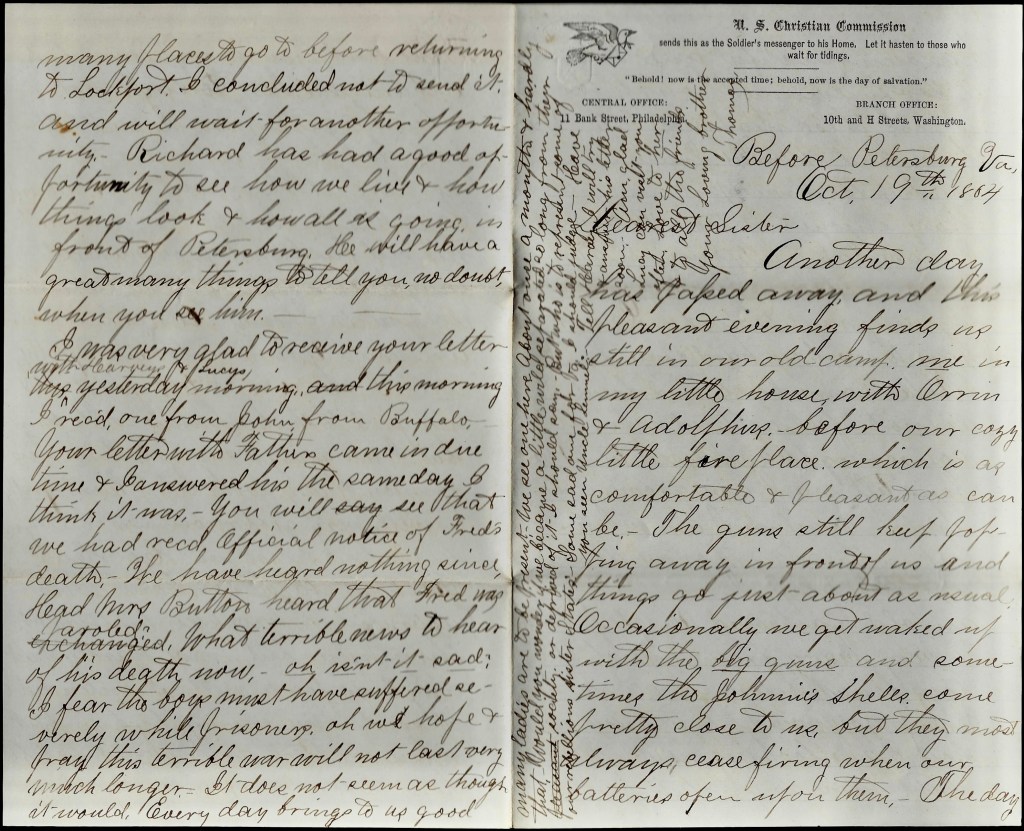 many places to go to before returning
to Lockport. I concluded not to send it.
and will wait for another opportu-
nity. - Richard has had a good op-
portunity to see how we live & how
things look & how all is going in
front of Petersburg. He will have a
great many things to tell you, no doubt,
when you see him. —
I was very glad to receive your letter
with Harveys & Lucys,
yesterday morning, and this morning
I recd, one from John from Buffalo, -
Your letter with Fathers came in due
time & I answered his the same day I
think it was. - You will say see that
we had recd, Official notice of Fred's
death. - We have heard nothing since,
Head Mrs Button heard that Fred was
paroled.
exchanged. What terrible news to hear
of his death now. - oh isn't it sad;
I fear the boys must have suffered se-
verely while prisoners. oh we hope &
pray this terrible war will not last very
much longer. - It does not seem as though
it would. Every day brings to us good
U. S. Christian Commission
sends this as the Soldier's messenger to his Home. Let it hasten to those who
wait for tidings.
"Behold! now is the accepted time; behold, now is the day of salvation."
CENTRAL OFFICE:
11 Bank Street, Philadelphia.
BRANCH OFFICE:
10th and H Streets, Washington.
Before Petersburg Va,
Oct, 19th 1864
Dearest Sister
Another day
has passed away, and this
pleasant evening finds us
still in our old camp. me in
my little house, with Orrin
& Adolphus, - before our cozy
little fireplace. which is as
comfortable & pleasant as can
be. - The guns still keep pop-
ping away in front of us and
things go just about as usual.
Occasionally we get waked up
with the big guns and some-
times the Johnnie's Shells come
pretty close to us, but they most
always, cease firing when our
batteries open upon them. - The day
many ladies are to be present - (we see one here about once a month & hardly
that. Would you wonder if we became a little wild separated so long from their
society, or deprived of it I should say - but who is to represent some of
our rebellious sister States? Some sad ones I should judge - Have
you seen Uncle Samuel? Tell Harvey I will try
& answer his letter
soon. Am glad
Lucy can visit you
often. Love to her
& to all the friends
Your Loving brother
Thomas